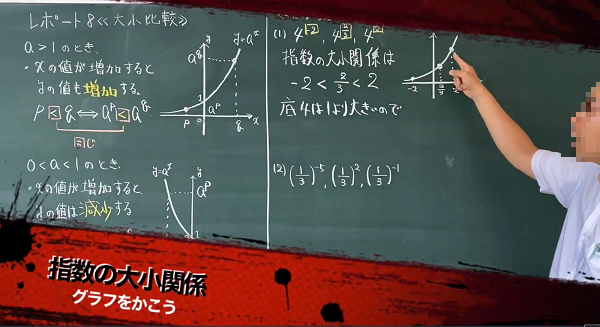 レポート8≪大小比較≫
a>1のとき、
・xの値が増加すると
yの値も増加する。
p<q⇔a^p<a^q
同じ
y=a^x
y
a^q
1
a^p
p
0
q
x
0<a<1のとき、
・xの値が増加すると、
yの値は減少する
y=a^x
y
a^p
1
(1) 4^-2, 4^2/3, 4^2
指数の大小関係は
-2<2/3<2
底4は1より大きいので
-2
2/3
2
(2) (1/3)^-5, (1/3)^2, (1/3)^-1
指数の大小関係
グラフをかこう